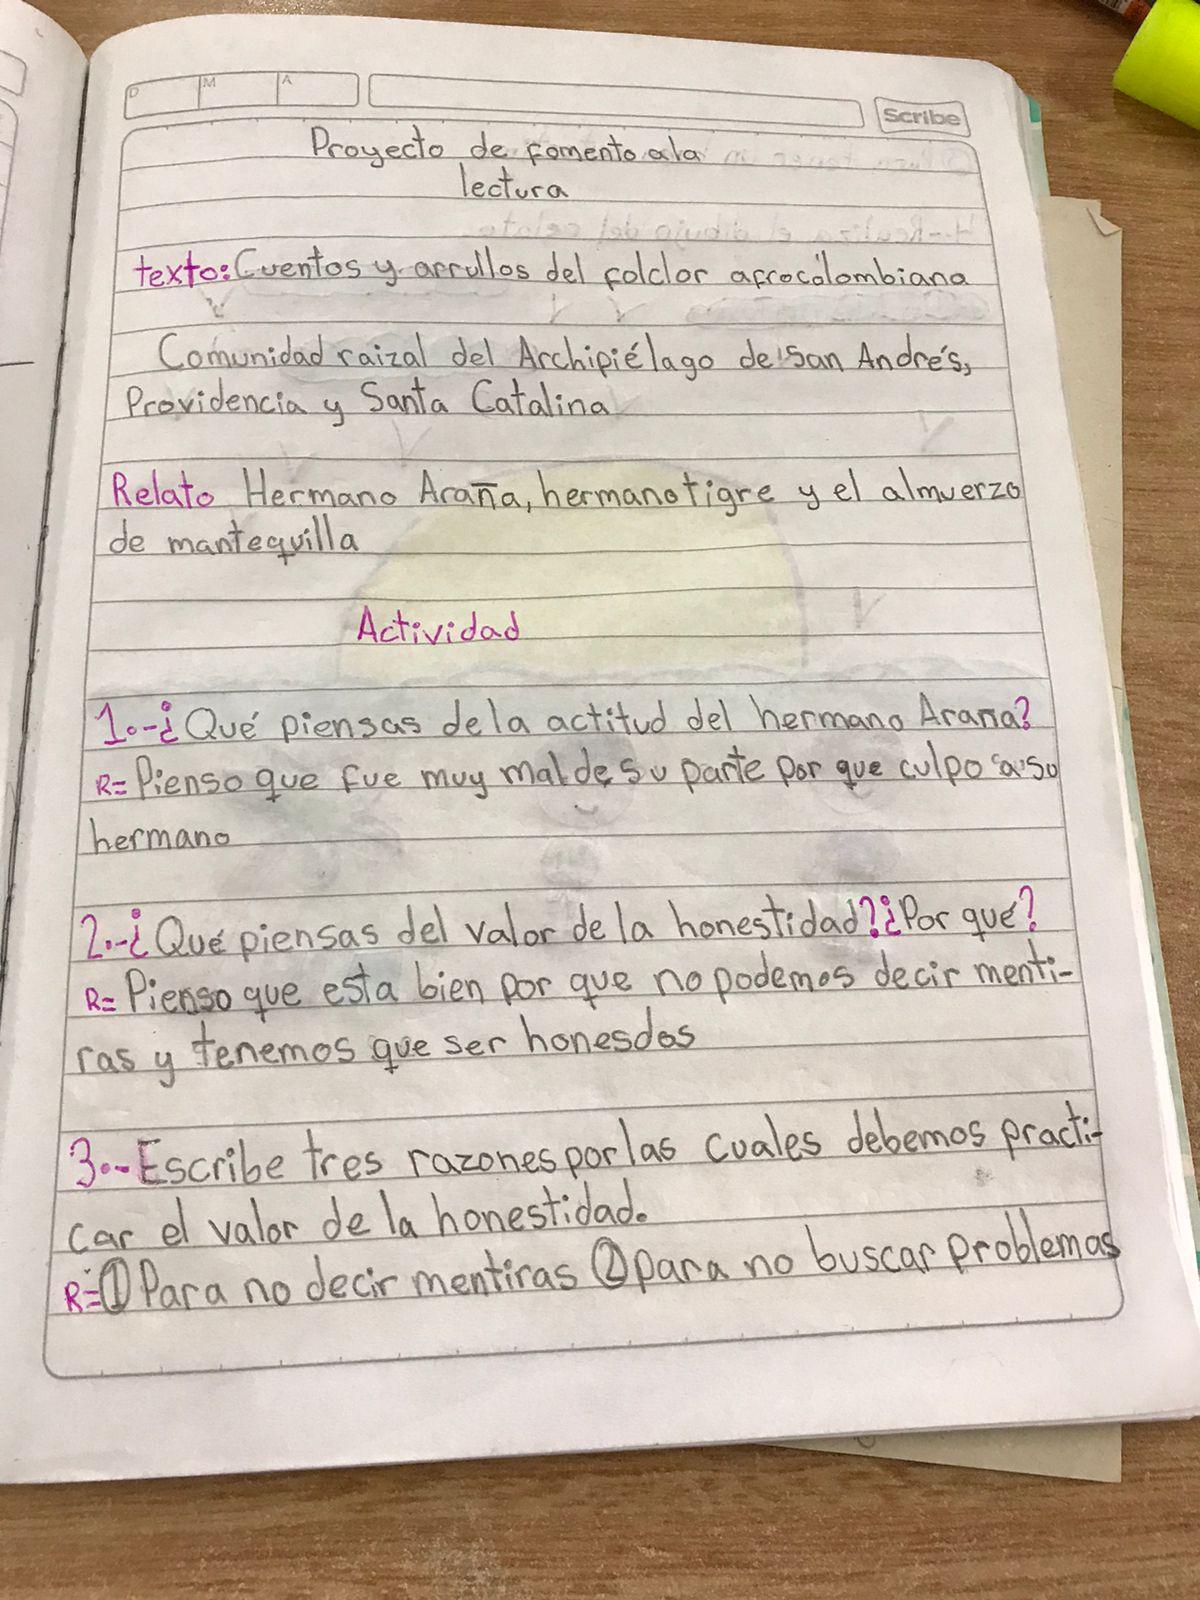 D M A
Scribe
Proyecto de fomento a la
lectura
texto: Cuentos y arrullos del folclor afrocolombiana
Comunidad raizal del Archipiélago de San Andrés,
Providencia y Santa Catalina
Relato Hermano Araña, hermano tigre y el almuerzo
de mantequilla
Actividad
1.-¿Qué piensas de la actitud del hermano Araña?
R= Pienso que fue muy mal de su parte por que culpo a su
hermano
2.-¿Qué piensas del valor de la honestidad?¿Por qué?
R= Pienso que esta bien por que no podemos decir menti-
ras y tenemos que ser honesdos
3.-Escribe tres razones por las cuales debemos practi-
car el valor de la honestidad.
R=① Para no decir mentiras ② para no buscar problemas